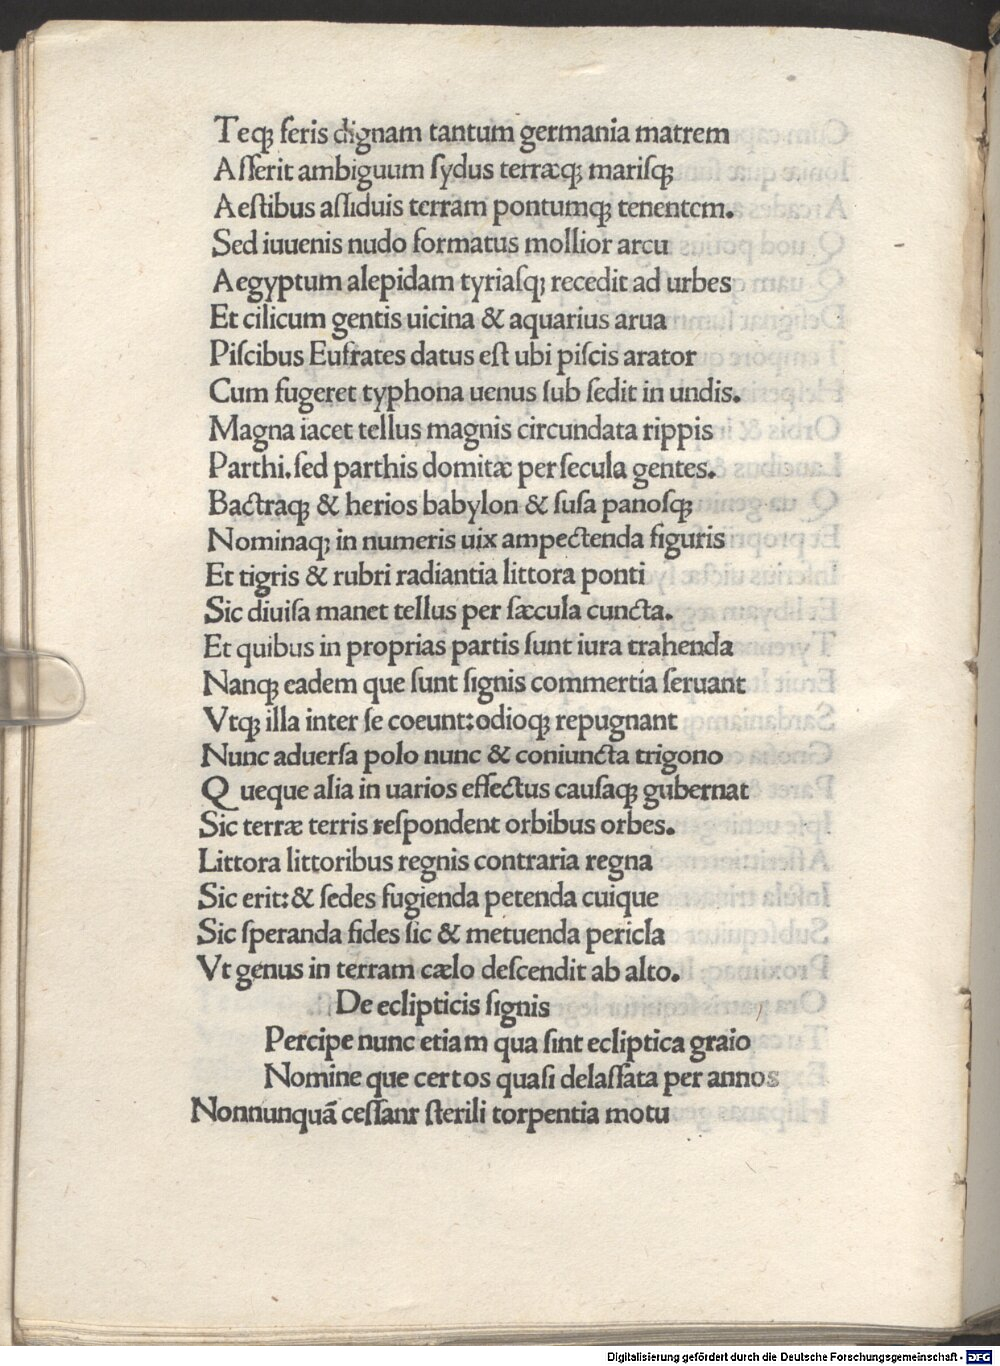 Teqꝫ ſeris dignam tantum germania matrem
Aſſerit ambiguum ſydus terræqꝫ mariſqꝫ
Aeſtibus aſſiduis terram pontumqꝫ tenentem.
Sed iuuenis nudo formatus mollior arcu
Aegyptum alepidam tyriaſqꝫ recedit ad urbes
Et cilicum gentis uicina & aquarius arua
Piſcibus Eufrates datus eſt ubi piſcis arator
Cum fugeret typhona uenus ſub ſedit in undis.
Magna iacet tellus magnis circundata rippis
Parthi. ſed parthis domitæ per ſecula gentes.
Bactraqꝫ & herios babylon & ſuſa panoſqꝫ
Nominaqꝫ in numeris uix ampectenda figuris
Et tigris & rubri radiantia littora ponti
Sic diuiſa manet tellus per ſæcula cuncta.
Et quibus in proprias partis ſunt iura trahenda
Nanqꝫ eadem que ſunt ſignis commertia ſeruant
Vtqꝫ illa inter ſe coeunt: odioqꝫ repugnant
Nunc aduerſa polo nunc & coniuncta trigono
Q ueque alia in uarios effectus cauſaqꝫ gubernat
Sic terræ terris reſpondent orbibus orbes.
Littora littoribus regnis contraria regna
Sic erit: & ſedes fugienda petenda cuique
Sic ſperanda fides ſic & metuenda pericla
Vt genus in terram cælo deſcendit ab alto.
De eclipticis ſignis
Percipe nunc etiam qua ſint ecliptica graio
Nomine que certos quaſi delaſſata per annos
Nonnunquā ceſſanr ſterili torpentia motu
Digitalisierung gefördert durch die Deutsche Forschungsgemeinschaft - DFG